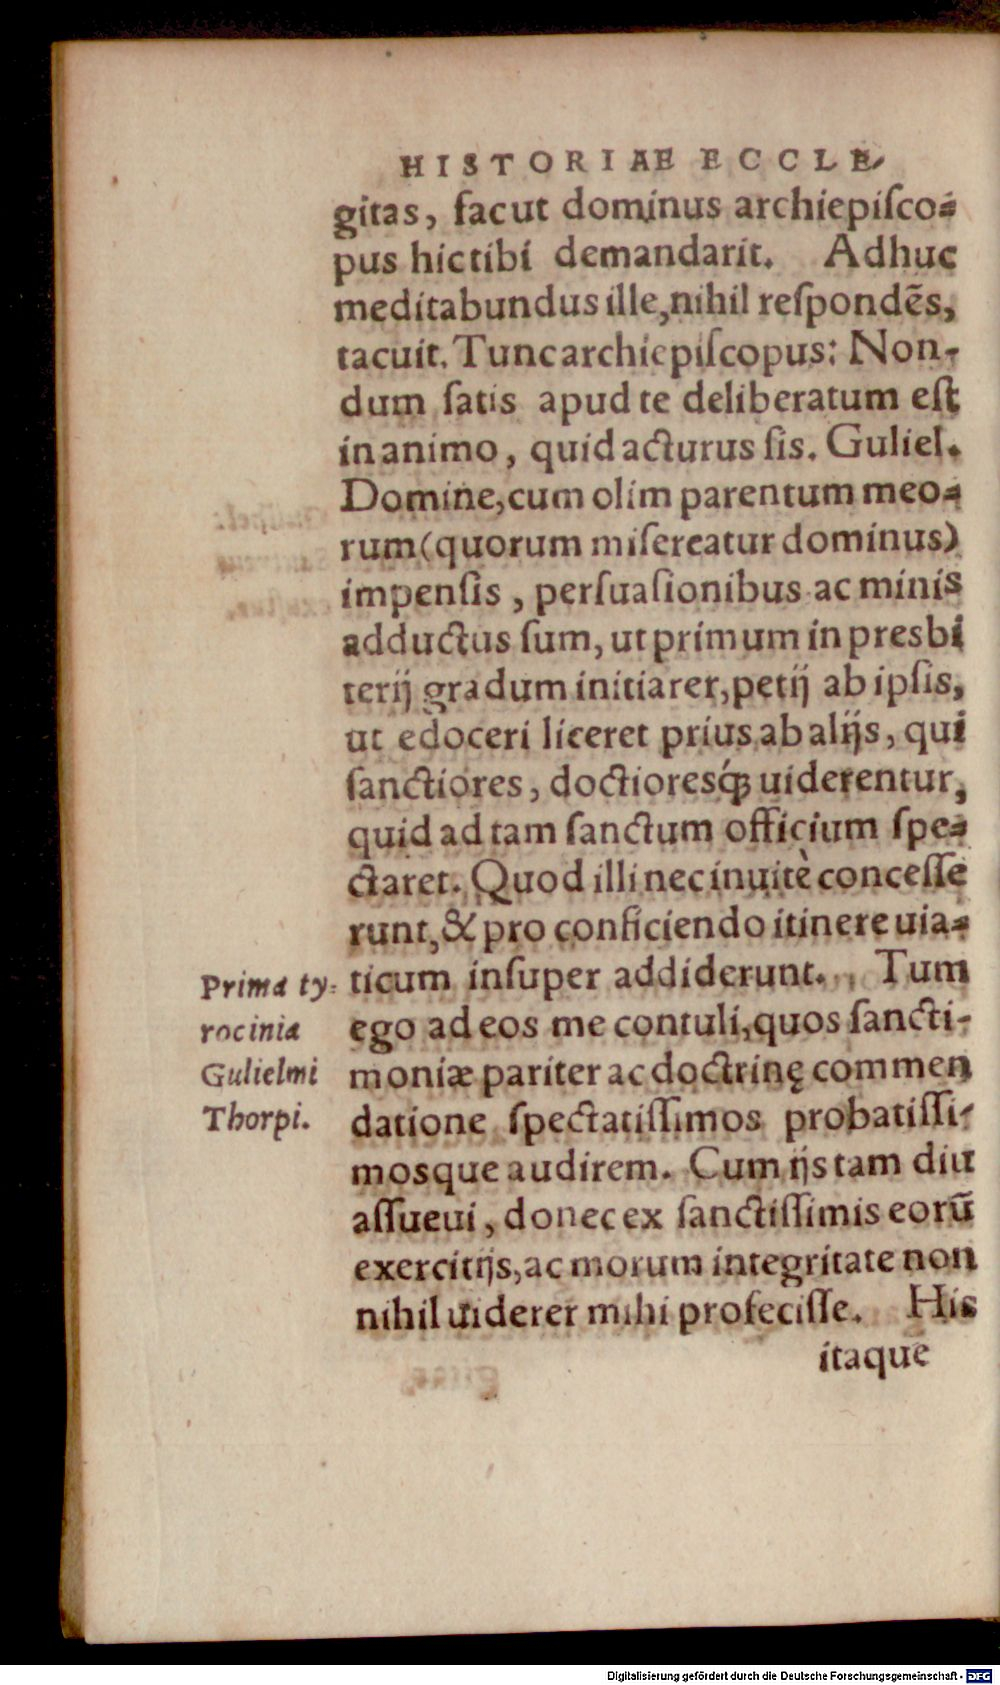 HISTORIAE ECCLE-
gitas, fac ut dominus archiepiſco-
pus hic tibi demandarit. Adhuc
meditabundus ille, nihil reſpondẽs,
tacuit. Tunc archiepiſcopus: Non-
dum ſatis apud te deliberatum eſt
in animo, quid acturus ſis. Guliel.
Domine, cum olim parentum meo-
rum (quorum miſereatur dominus)
impenſis, perſuaſionibus ac minis
adductus ſum, ut primum in presbi
terij gradum initiarer, petij ab ipſis,
ut edoceri liceret prius ab alijs, qui
ſanctiores, doctioresq́; uiderentur,
quid ad tam ſanctum officium ſpe-
ctaret. Quod illi nec inuitè conceſſe
runt, & pro conficiendo itinere uia-
ticum inſuper addiderunt. Tum
ego ad eos me contuli, quos ſancti-
moniæ pariter ac doctrinę commen
datione ſpectatiſſimos probatiſſi-
mosque audirem. Cum ijs tam diu
aſſueui, donec ex ſanctiſſimis eorũ
exercitijs, ac morum integritate non
nihil uiderer mihi profeciſſe. His
itaque
Prima ty-
rocinia
Gulielmi
Thorpi.
Digitalisierung gefördert durch die Deutsche Forschungsgemeinschaft - DFG